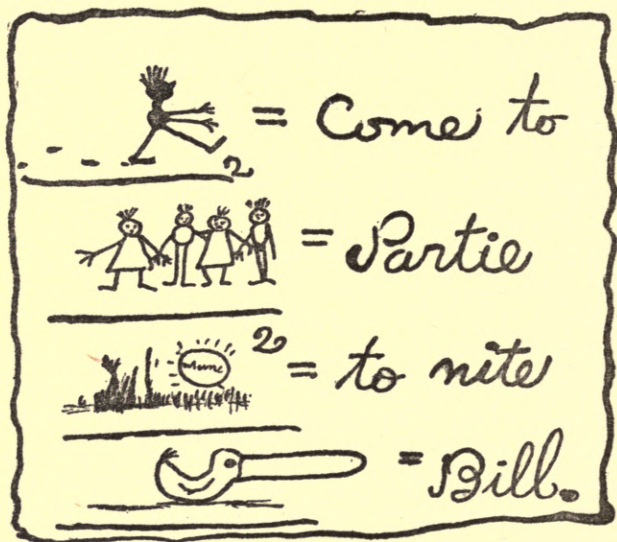 2 = Come to
= Partie
2 = to nite
= Bill.